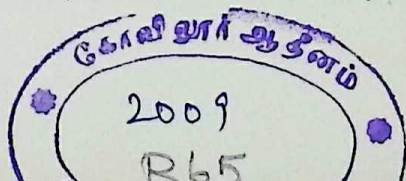 கோவிலூர் ஆதீனம்
2009
R65